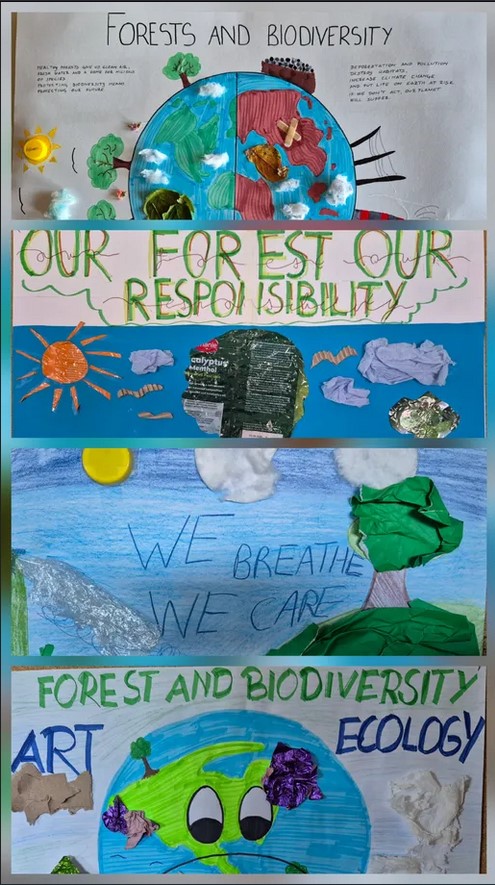 FORESTS AND BIODIVERSITY
HEALTHY FORESTS GIVE US CLEAN AIR,
FRESH WATER AND A HOME FOR MILLIONS
OF SPECIES.
PROTECTING BIODIVERSITY MEANS
PROTECTING OUR FUTURE.
DEFORESTATION AND POLLUTION
DESTROY HABITATS,
INCREASE CLIMATE CHANGE
AND PUT LIFE ON EARTH AT RISK.
IF WE DON'T ACT, OUR PLANET
WILL SUFFER.
OUR FOREST OUR
RESPONSIBILITY
calyptus
menthol
WE BREATHE
WE CARE
FOREST AND BIODIVERSITY
ART
ECOLOGY